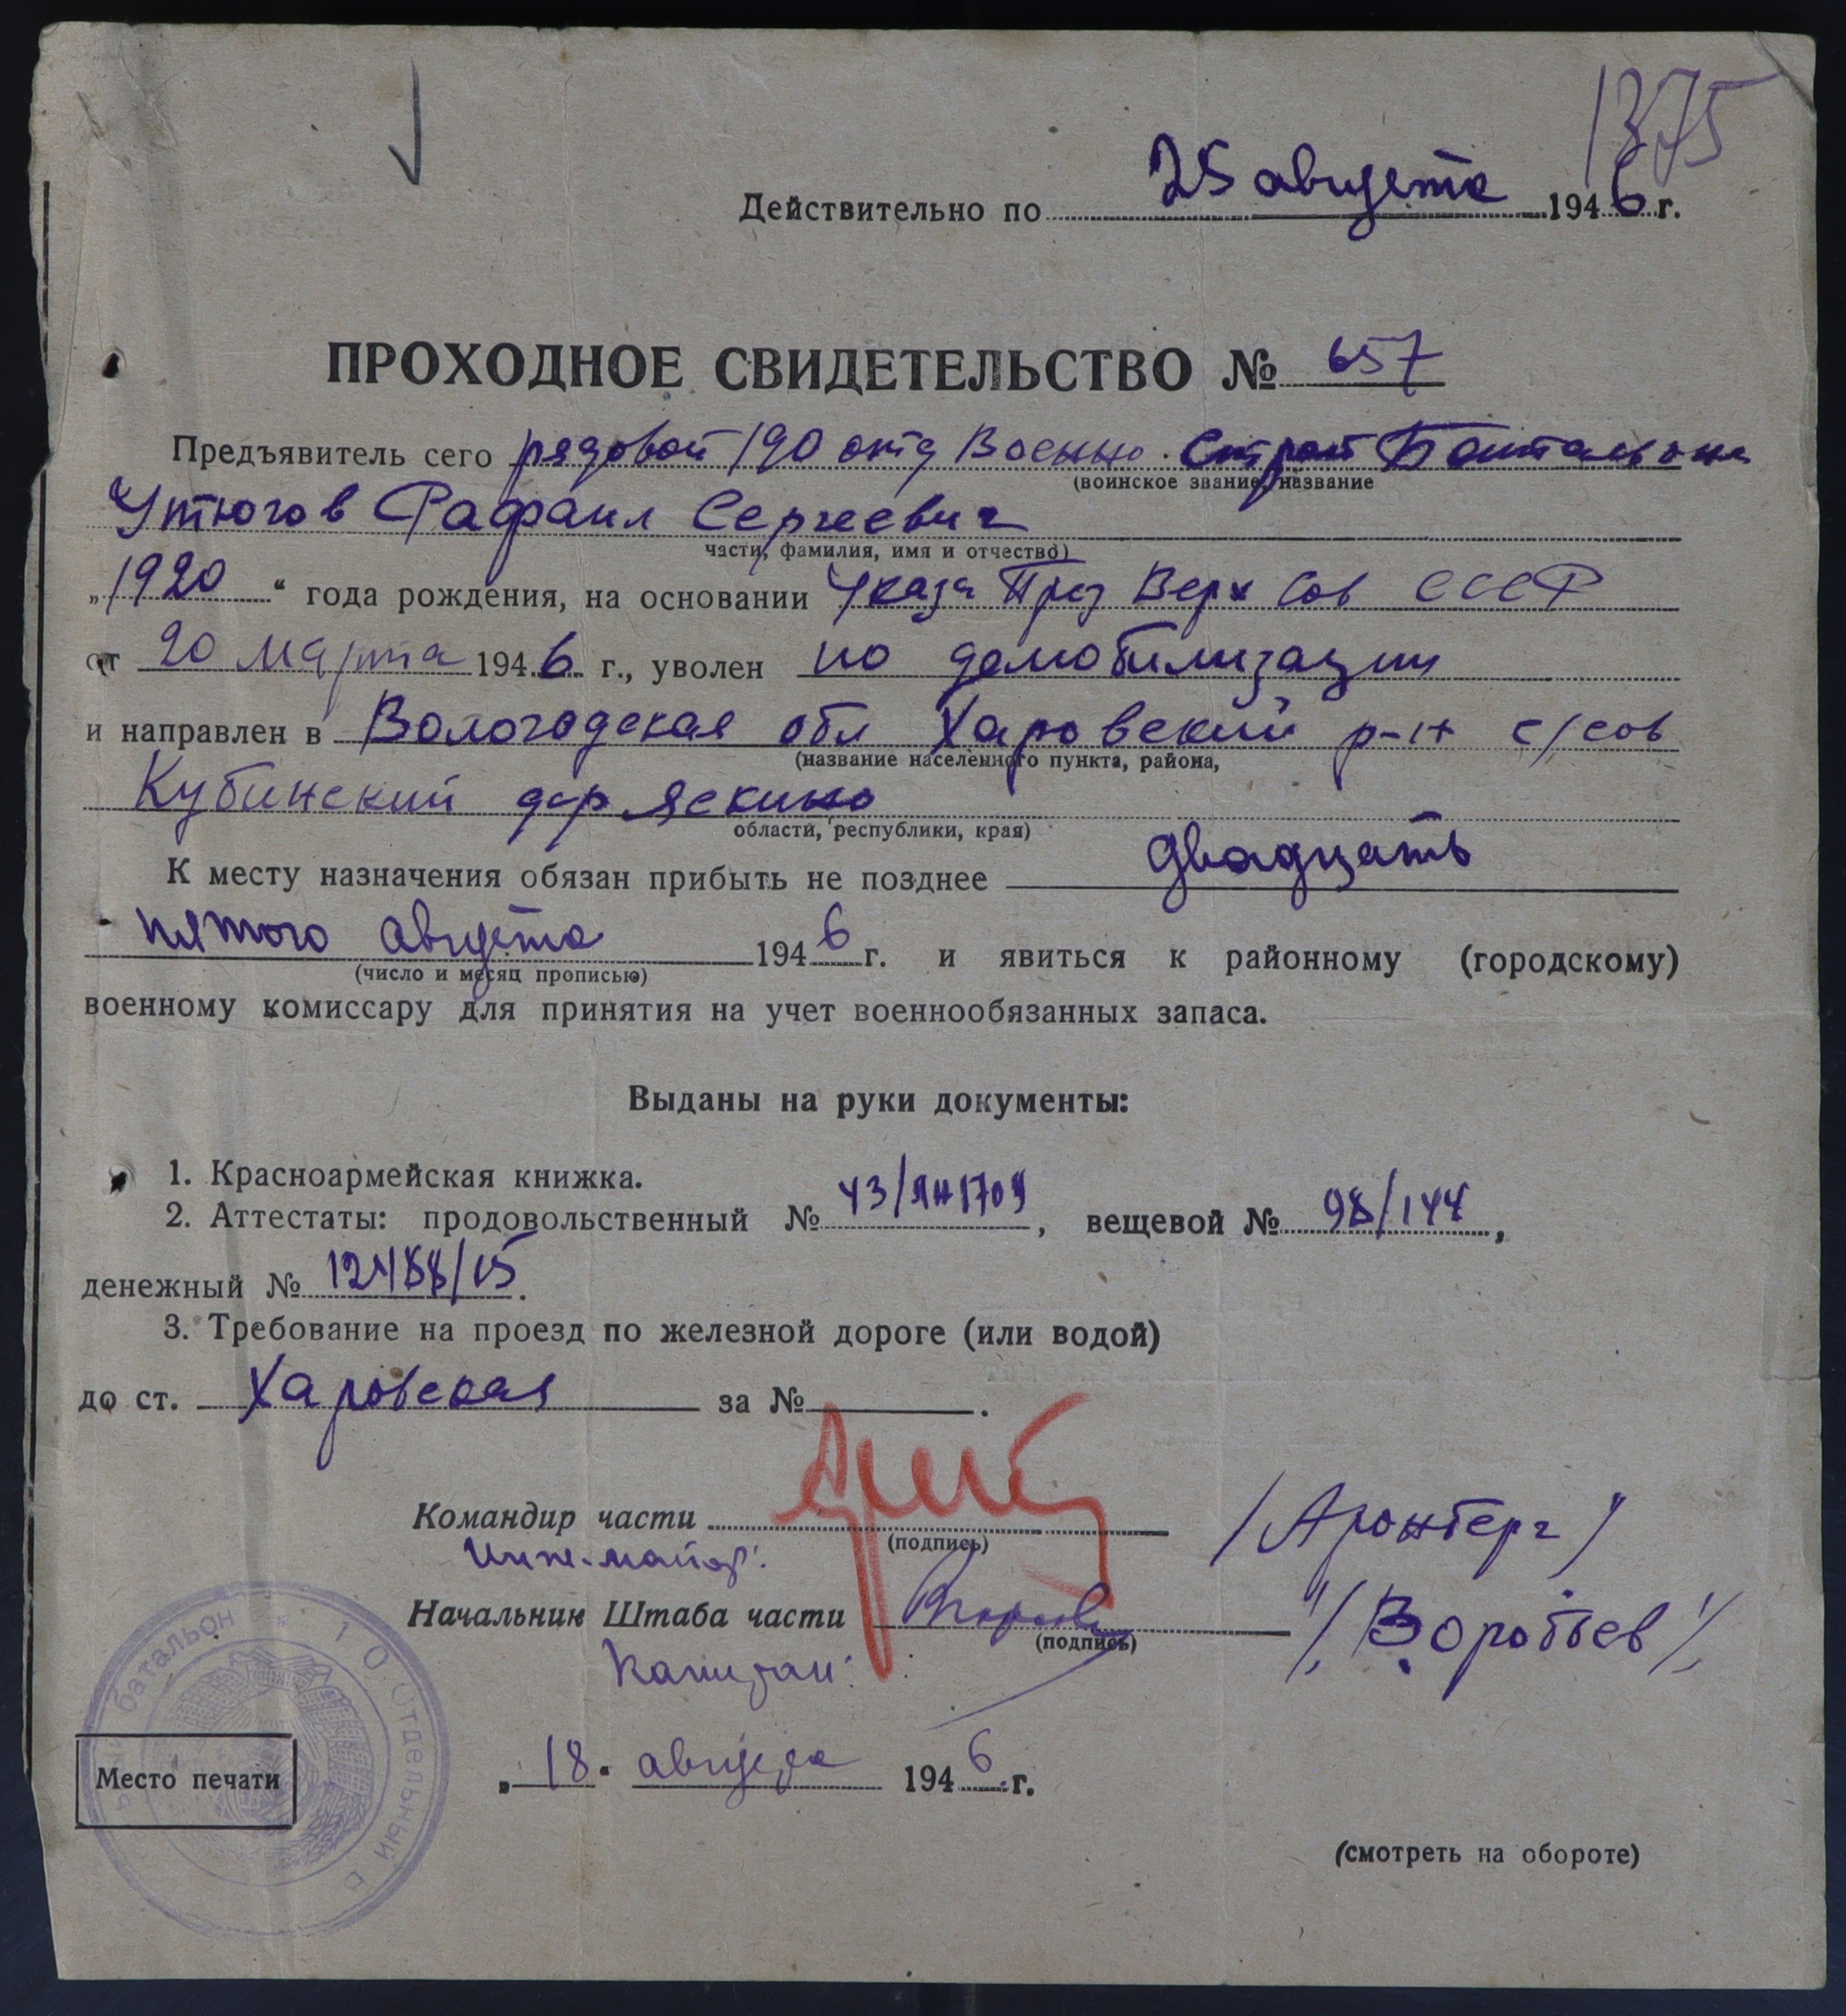 1375
Действительно по 25 августа 1946 г.
ПРОХОДНОЕ СВИДЕТЕЛЬСТВО № 657
Предъявитель сего рядовой 190 отд Военно. Строит Батальона
(воинское звание, название
Утюгов Рафаил Сергеевич
части, фамилия, имя и отчество)
„1920“ года рождения, на основании Указа През Верх Сов СССР
от 20 марта 1946 г., уволен по демобилизации
и направлен в Вологодская обл Харовский р-н с/сов
(название населенного пункта, района,
Кубинский дер Яскино
области, республики, края)
К месту назначения обязан прибыть не позднее двадцать
пятого августа 1946 г. и явиться к районному (городскому)
(число и месяц прописью)
военному комиссару для принятия на учет военнообязанных запаса.
Выданы на руки документы:
1. Красноармейская книжка.
2. Аттестаты: продовольственный №, вещевой № 98/144,
денежный №
3. Требование на проезд по железной дороге (или водой)
до ст. Харовская за №.
Командир части /Аронберг/
(подпись)
Инж-майор:
Начальник Штаба части /Воробьев/
(подпись)
Капитан:
батальон * 10 Отдельный
Место печати
„18“ августа 1946 г.
(смотреть на обороте)